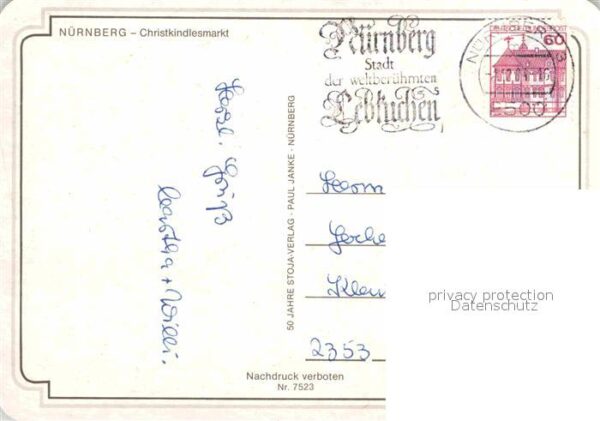 NÜRNBERG – Christkindlesmarkt
Nürnberg
Stadt
der weltberühmten
Lebkuchen
60
Herzl. Grüß
Martha + Willi.
50 JAHRE STOJA-VERLAG · PAUL JANKE · NÜRNBERG
2353
privacy protection
Datenschutz
Nachdruck verboten
Nr. 7523